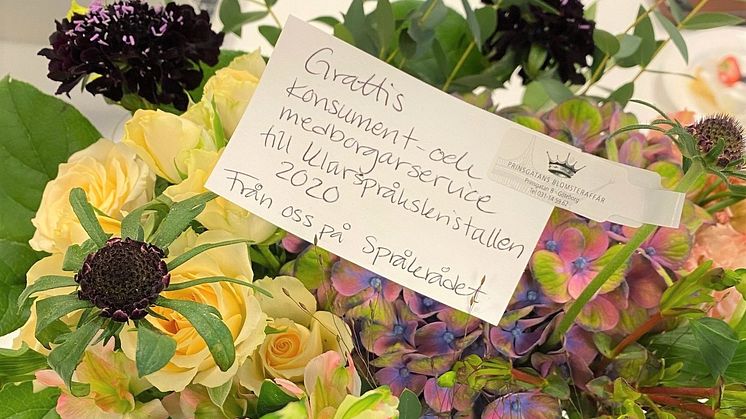 Grattis
Konsument- och
medborgarservice
till Klarspråkskristallen
2020
Från oss på Språkrådet
PRINSGATANS BLOMSTERAFFÄR
Prinsgatan 8 - Göteborg
Tel 031-14 59 67